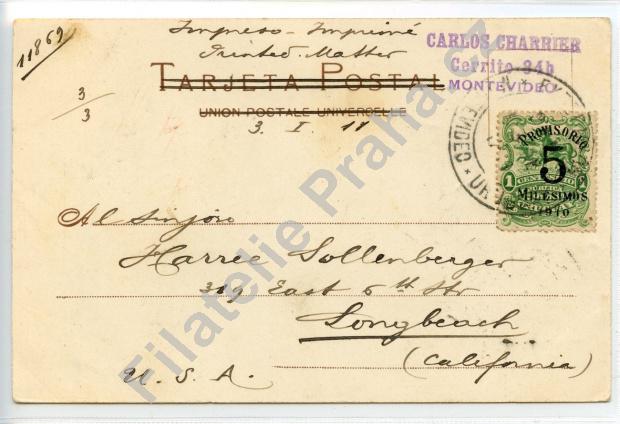 11869
Impreso - Imprimé
Printed Matter
CARLOS CHARRIER
Cerrito 84b
MONTEVIDEO
TARJETA POSTAL
UNION POSTALE UNIVERSELLE
3/3
3. I. 11
PROVISORIO
5
MILESIMOS
1910
1
Al Señor
Harree Sollenberger
319 East 6th Str
Longbeach
(California)
U. S. A.
Filatelie Praha cz